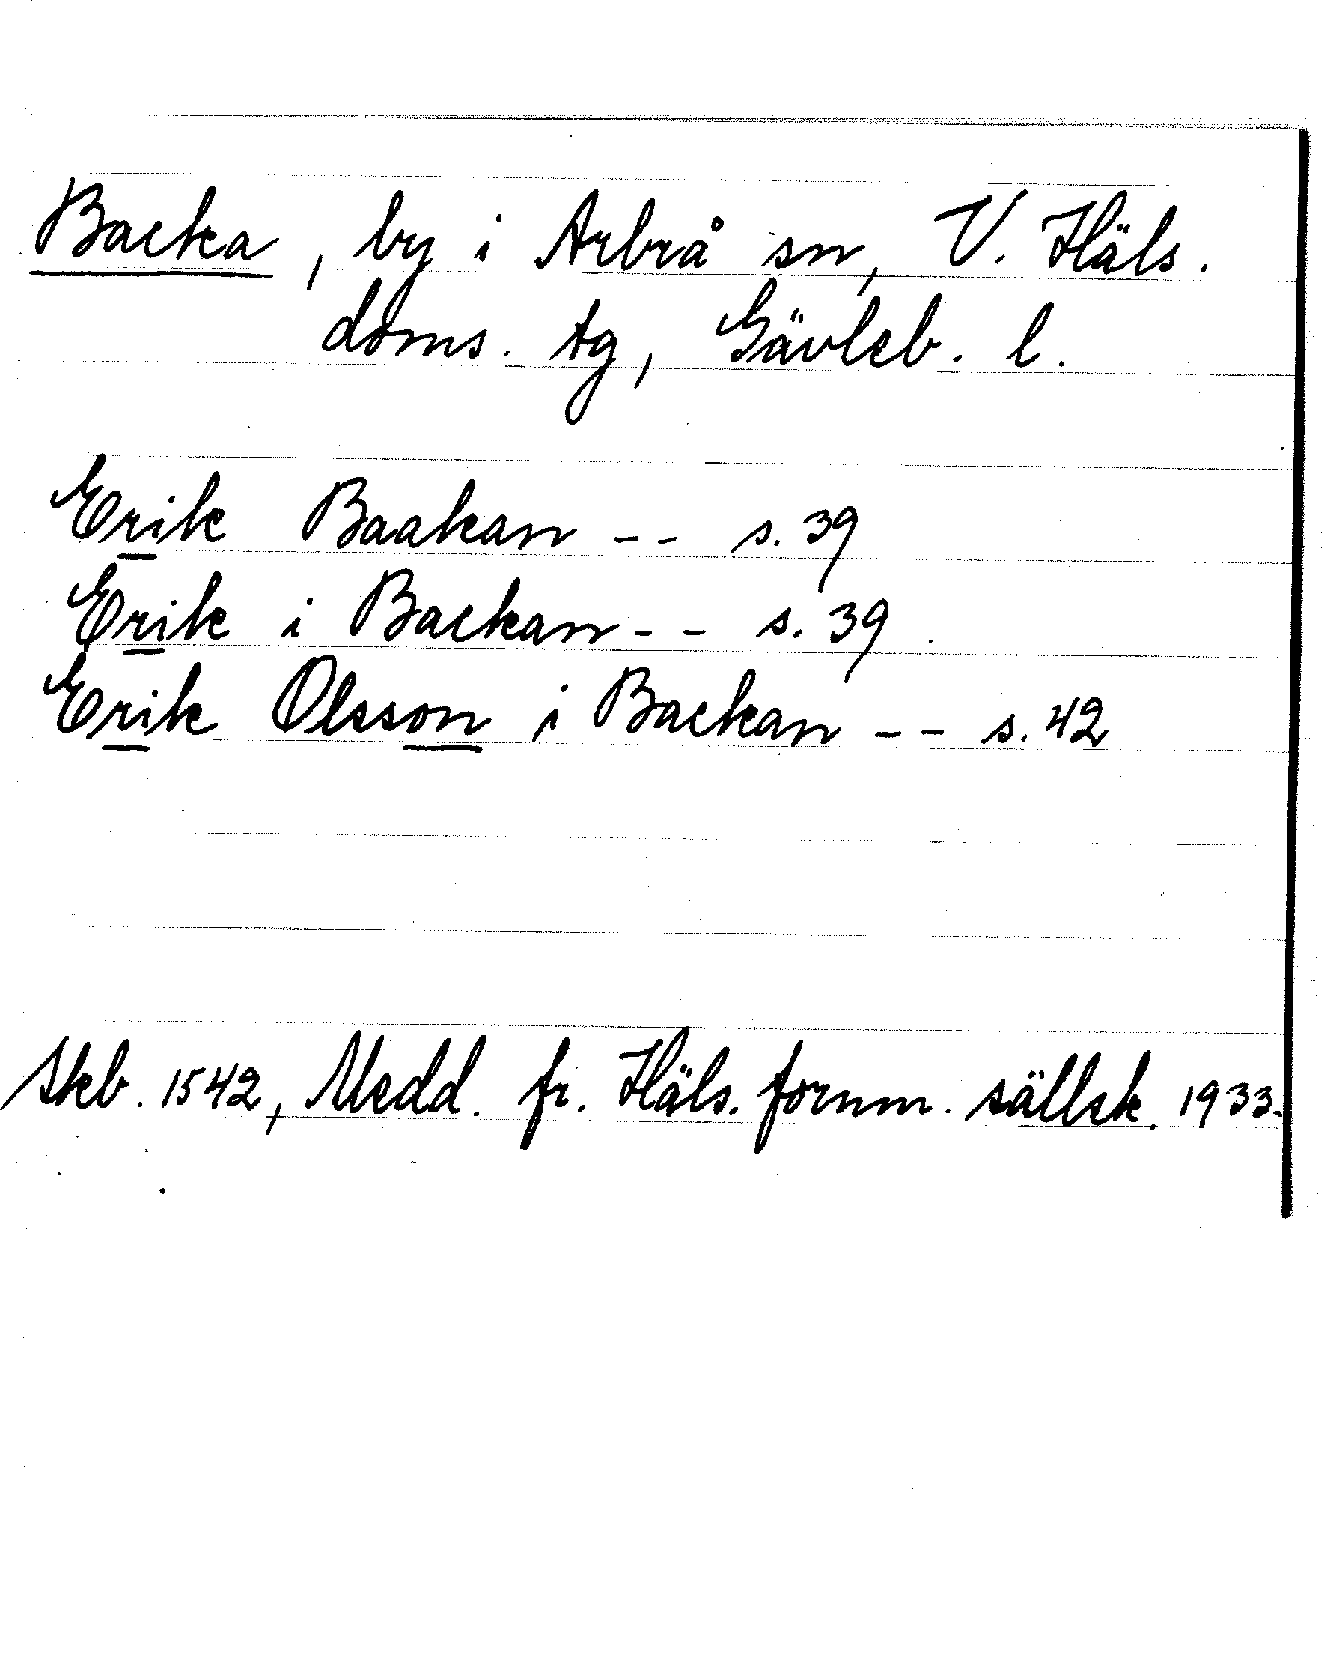 Backa, by i Arbrå sn, V. Häls.
doms. tg, Gävleb. l.
Erik Baakan -- s. 39
Erik i Backan -- s. 39.
Erik Olsson i Backan -- s. 42
Skb. 1542, Medd. fr. Häls. fornm. sällsk. 1933.